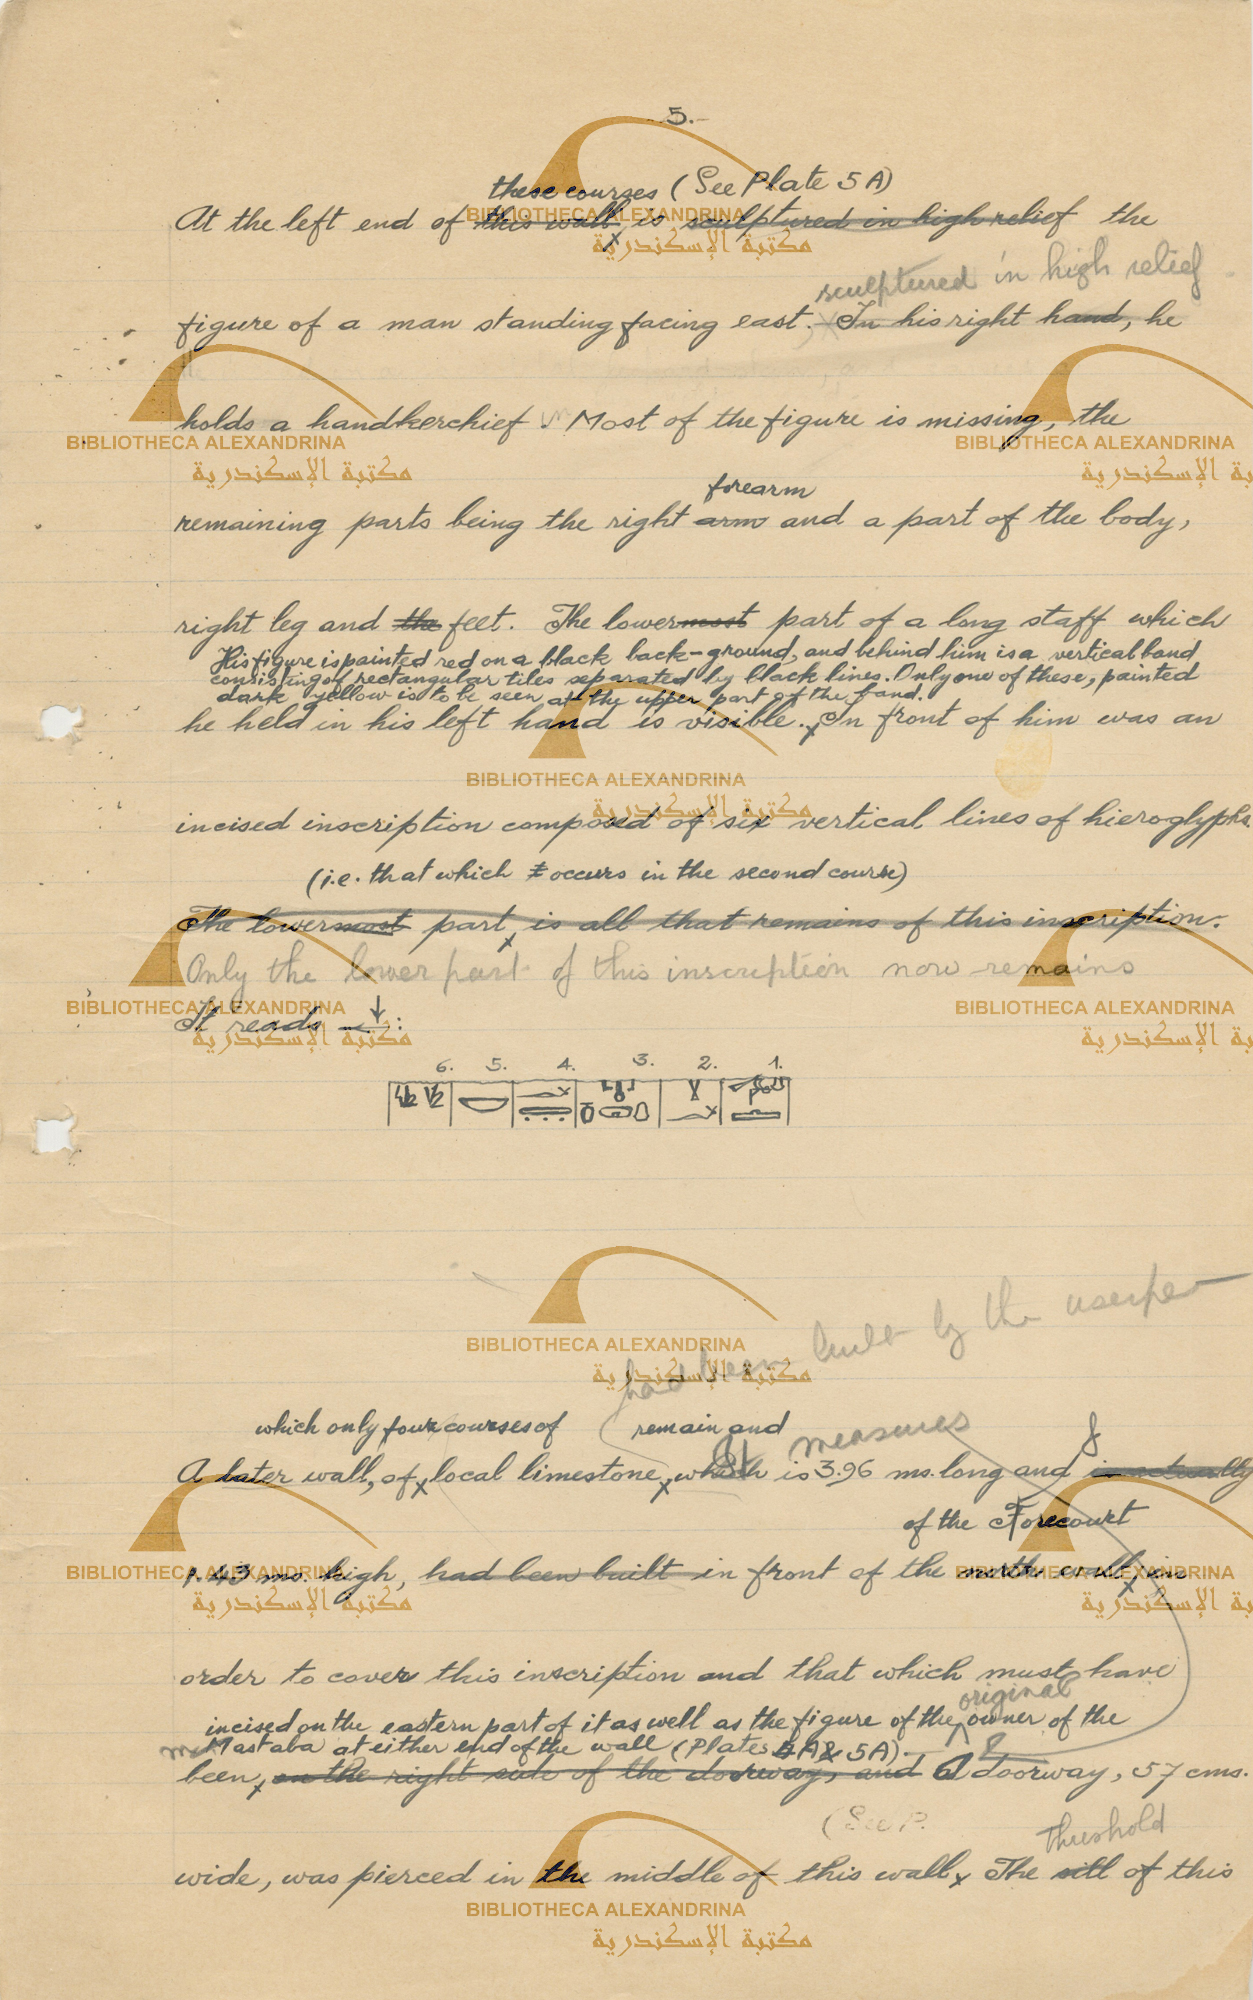 5.
these courses (See Plate 5A)
At the left end of this wall, is sculptured in high relief the
sculptured in high relief
figure of a man standing facing east. In his right hand, he
holds a handkerchief. Most of the figure is missing, the
forearm
remaining parts being the right arm and a part of the body,
right leg and the feet. The lowermost part of a long staff which
His figure is painted red on a black back-ground, and behind him is a vertical band
consisting of rectangular tiles separated by black lines. Only one of these, painted
dark yellow is to be seen at the upper part of the band.
he held in his left hand is visible. x In front of him was an
incised inscription composed of six vertical lines of hieroglyphs.
(i.e. that which occurs in the second course)
The lowermost part x is all that remains of this inscription.
Only the lower part of this inscription now remains
It reads :
6. 5. 4. 3. 2. 1.
had been built by the
which only four courses of remain and
It measures
A later wall, of x local limestone, x which is 3.96 ms. long and is actually
of the Forecourt
1.43 ms. high, had been built in front of the north wall, x in
order to cover this inscription and that which must have
original
incised on the eastern part of it as well as the figure of the owner of the
Mastaba at either end of the wall (Plates A & 5A)
been x on the right side of the doorway, and A doorway, 57 cms.
(See P.
threshold
wide, was pierced in the middle of this wall x The sill of this
BIBLIOTHECA ALEXANDRINA
مكتبة الإسكندرية